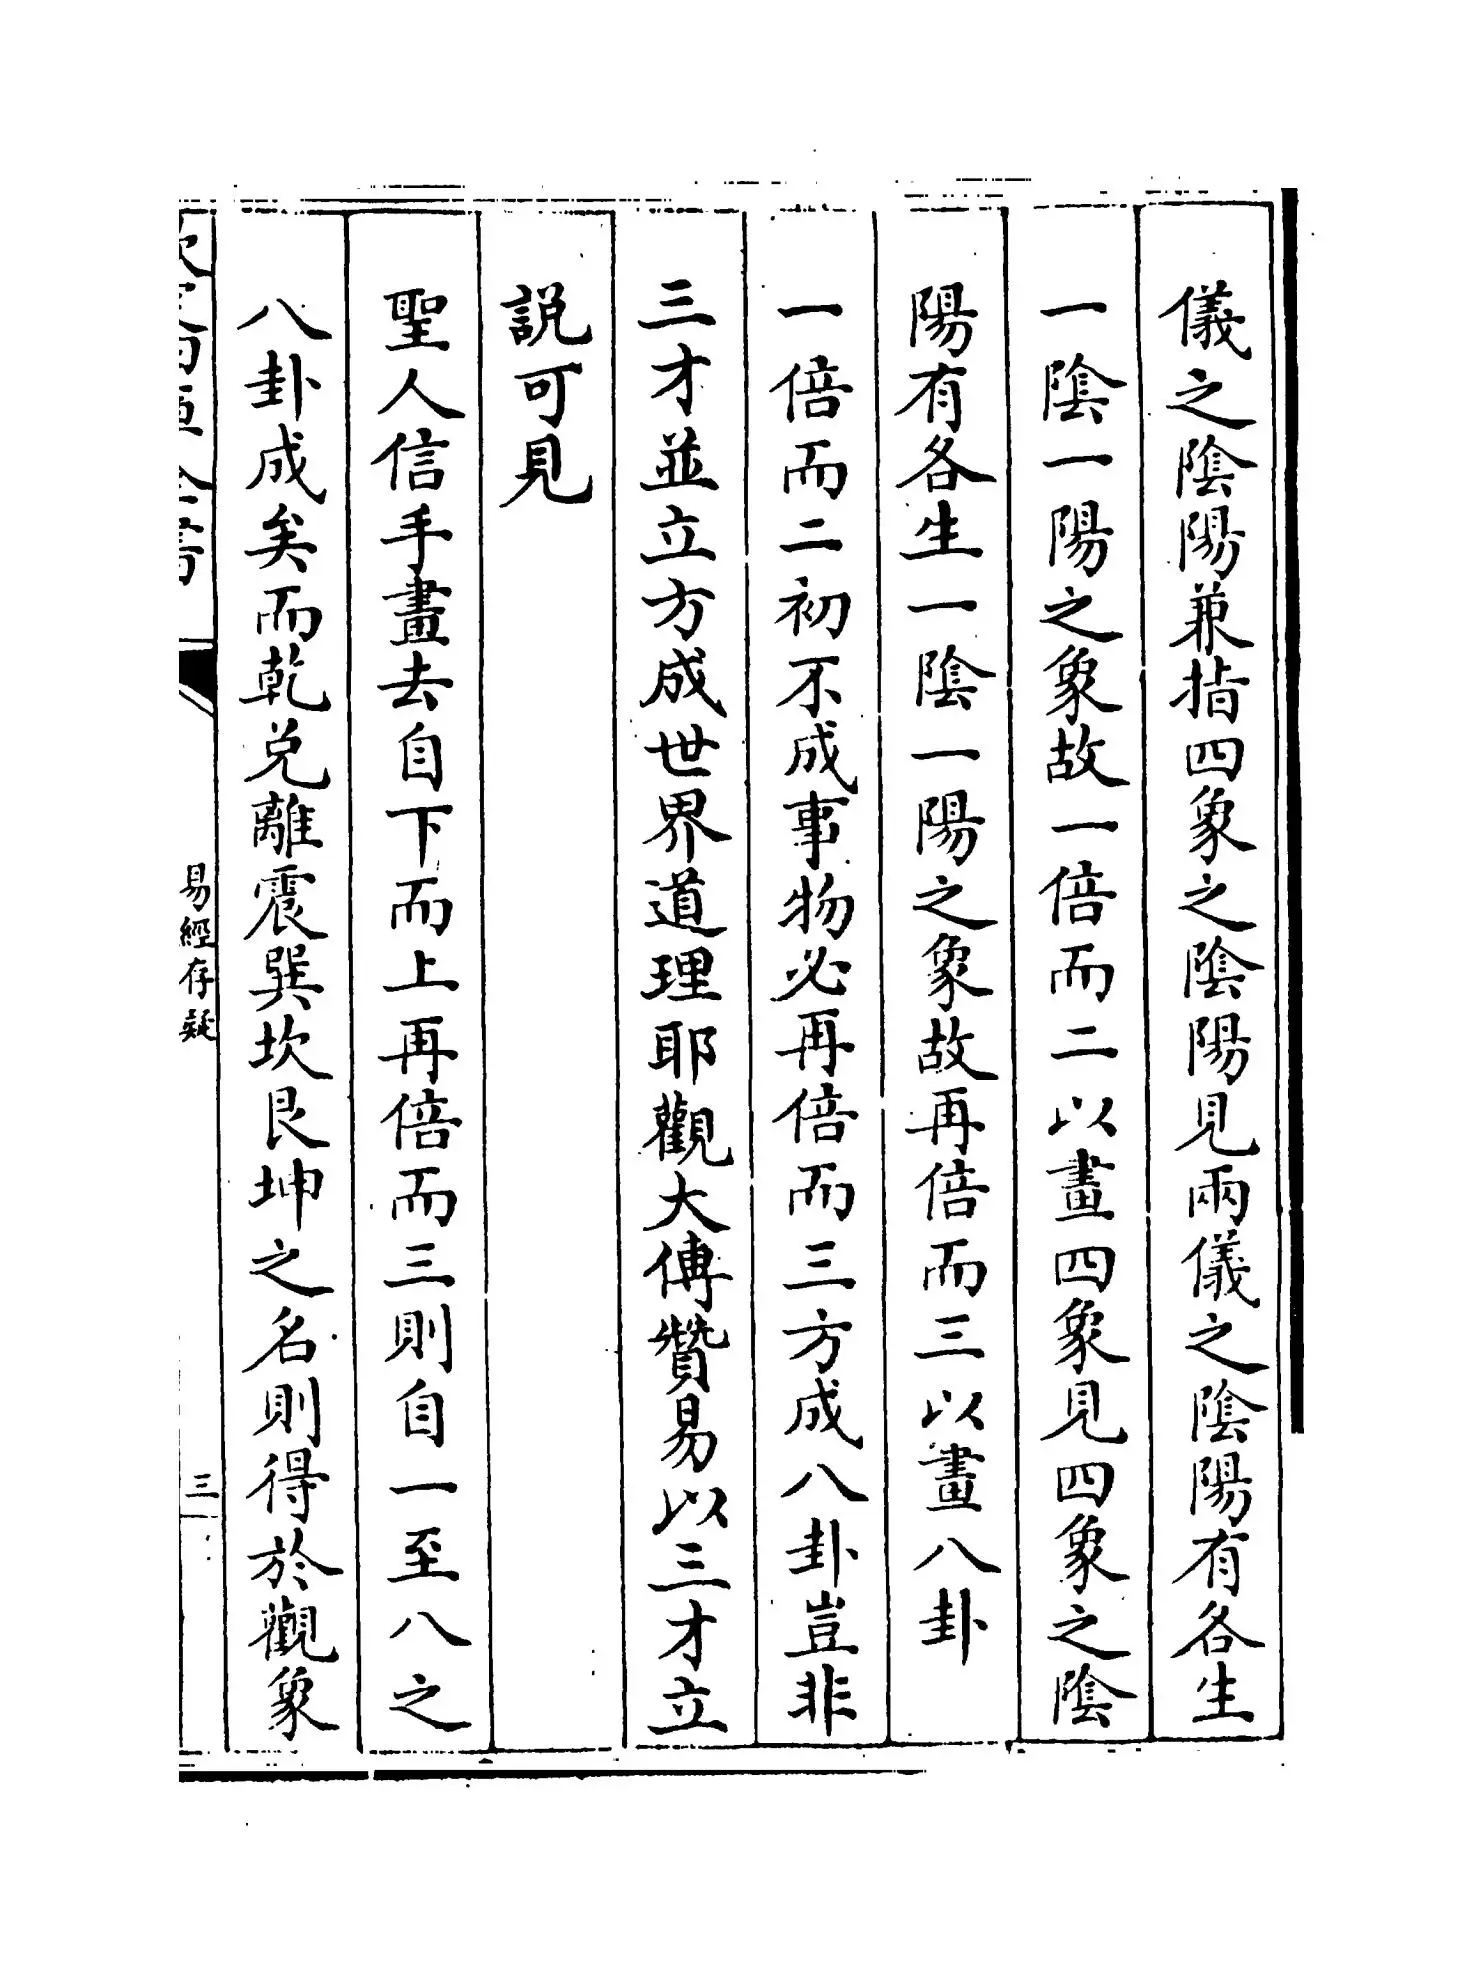 儀之陰陽兼指四象之陰陽見兩儀之陰陽有各生
一陰一陽之象故一倍而二以畫四象見四象之陰
陽有各生一陰一陽之象故再倍而三以畫八卦
一倍而二初不成事物必再倍而三方成八卦豈非
三才並立方成世界道理耶觀大傳贊易以三才立
說可見
聖人信手畫去自下而上再倍而三則自一至八之
八卦成矣而乾兌離震巽坎艮坤之名則得於觀象
易經存疑
三